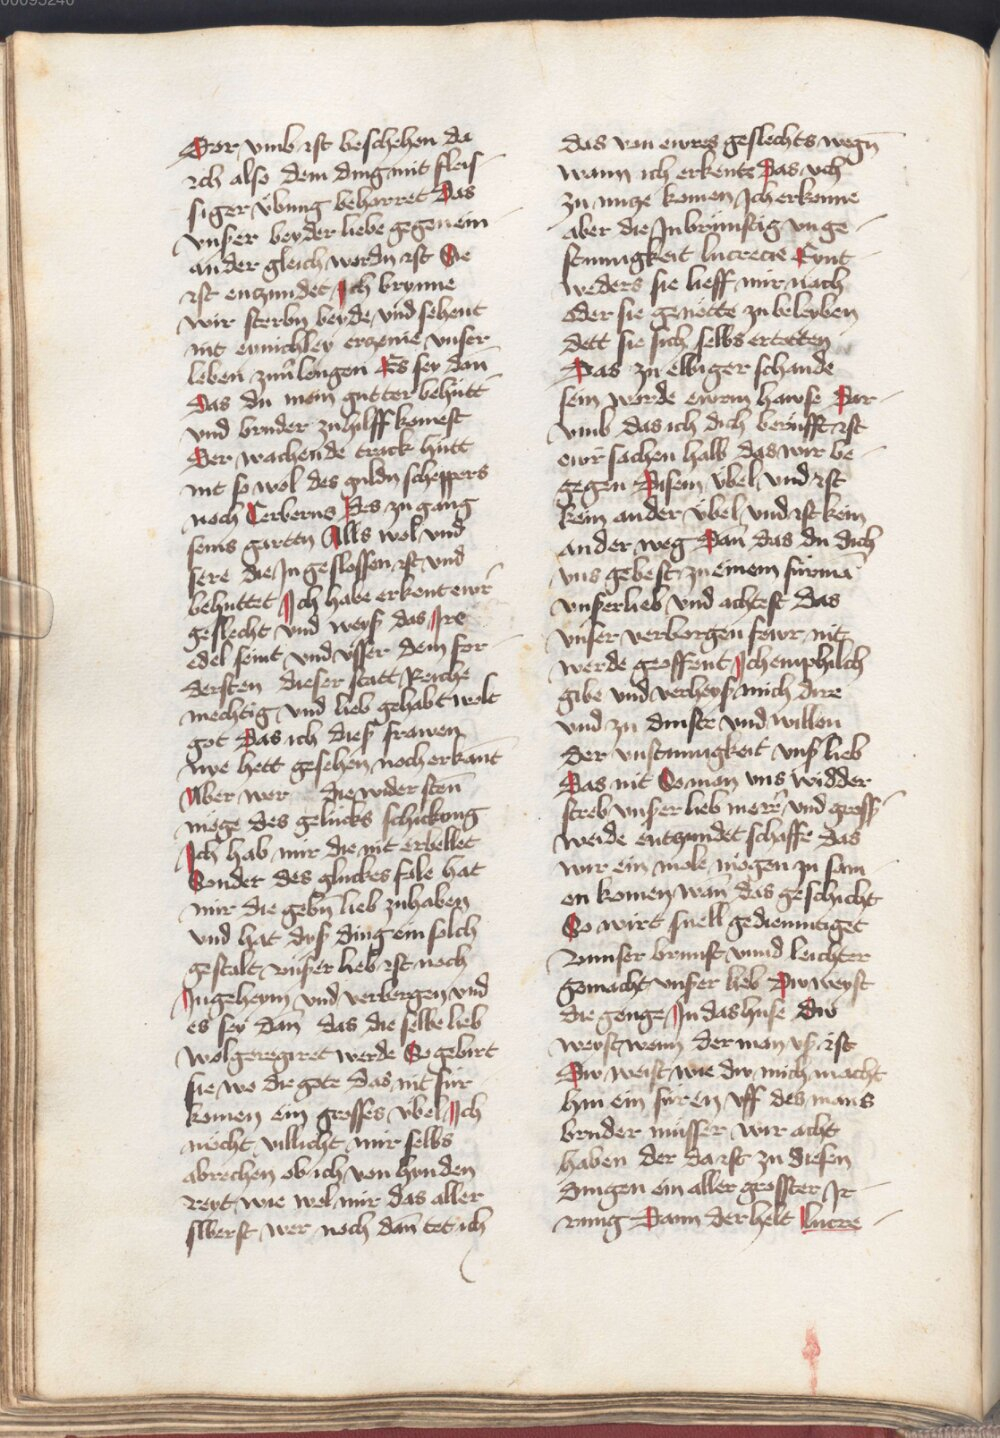 00095240
Dar vmb ist beschehen da
ich also dem ding mit fleis
siger übung beharret Das
vnser beyder liebe gegen ein
ander gleich wordn ist Sie
ist enzundet Ich brynne
wir sterbn beyde vnd sehent
nit eynichley erczenie vnser
leben zuuerlengen Es sey dan
Das du mein gutter behütt
vnd bruder zu hilff komest
Der wachende track hütt
nit so wol des guldn scheppers
noch Cerberus Des zu gang
seins garten Alls wol vnd
sere die In geslossen ist vnd
behuttet Ich habe erkent ewr
geslecht vnd weys das Ire
edel seint vnd vsser dem for
dersten dieser statt Reiche
mechtig vnd lieb gehabt wolt
got Das ich dieß frawen
nye hett gesehen noch erkant
Aber wer die wider sten
moge des gelucks schickung
Ich hab mir die nit erbellet
Sonder des gluckes fale hat
mir die gebn lieb zuhaben
vnd hat dyß ding ein solch
gestalt vnser lieb ist noch
In geheym vnd verborgen vnd
es sey dan das die selbe lieb
wol geregiret werde So gebirt
sie wo die gote das nit für
komen ein grosses übel Ich
möcht villicht mir selbs
abrechen ob ich von hynden
reyt wie wol mir das aller
swerst wer noch dan tet ich
das von ewres geslechts wegn
wann ich erkente Das ich
zu nuze komen Ich erkenne
aber die Inbrünstig vnge
stumigkeit lucrecie Eynt
weders sie lieff mir nach
oder sie genötte zu beleyben
dett sie sich selbs ertotten
Das zu ewiger schande
sein worde ewrm hawse Dar
vmb das ich dich berüfft ist
ewr sachen halb das wir be
gegen Disem übel vnd ist
kein ander übel vnd ist kein
ander weg Dan das du dich
vns gebest zu einem fürma
vnser lieb vnd achtest das
vnser verborgen fewr nit
werde geoffent Ich emphilch
gibe vnd verheyß mich dire
vnd zu dinste vnd willen
der vnstumigkeit vnß lieb
Das nit So man vns widder
streb vnser lieb merr vnd grosß
werde entzundet schaffe das
wir ein mole mögen zu sam
en komen wan das geschicht
So wirt snell gediemutiget
vnnser brunst vnnd leichter
gemacht vnser lieb Diw weyst
die genge In das huse Diw
weyst wenn der man vß ist
Diw weist wie diw mich macht
hin ein füren vff des mans
bruder müsser wir acht
haben der da ist zu diesen
dingen ein aller grosster Ir
rung Dann der helt lucre